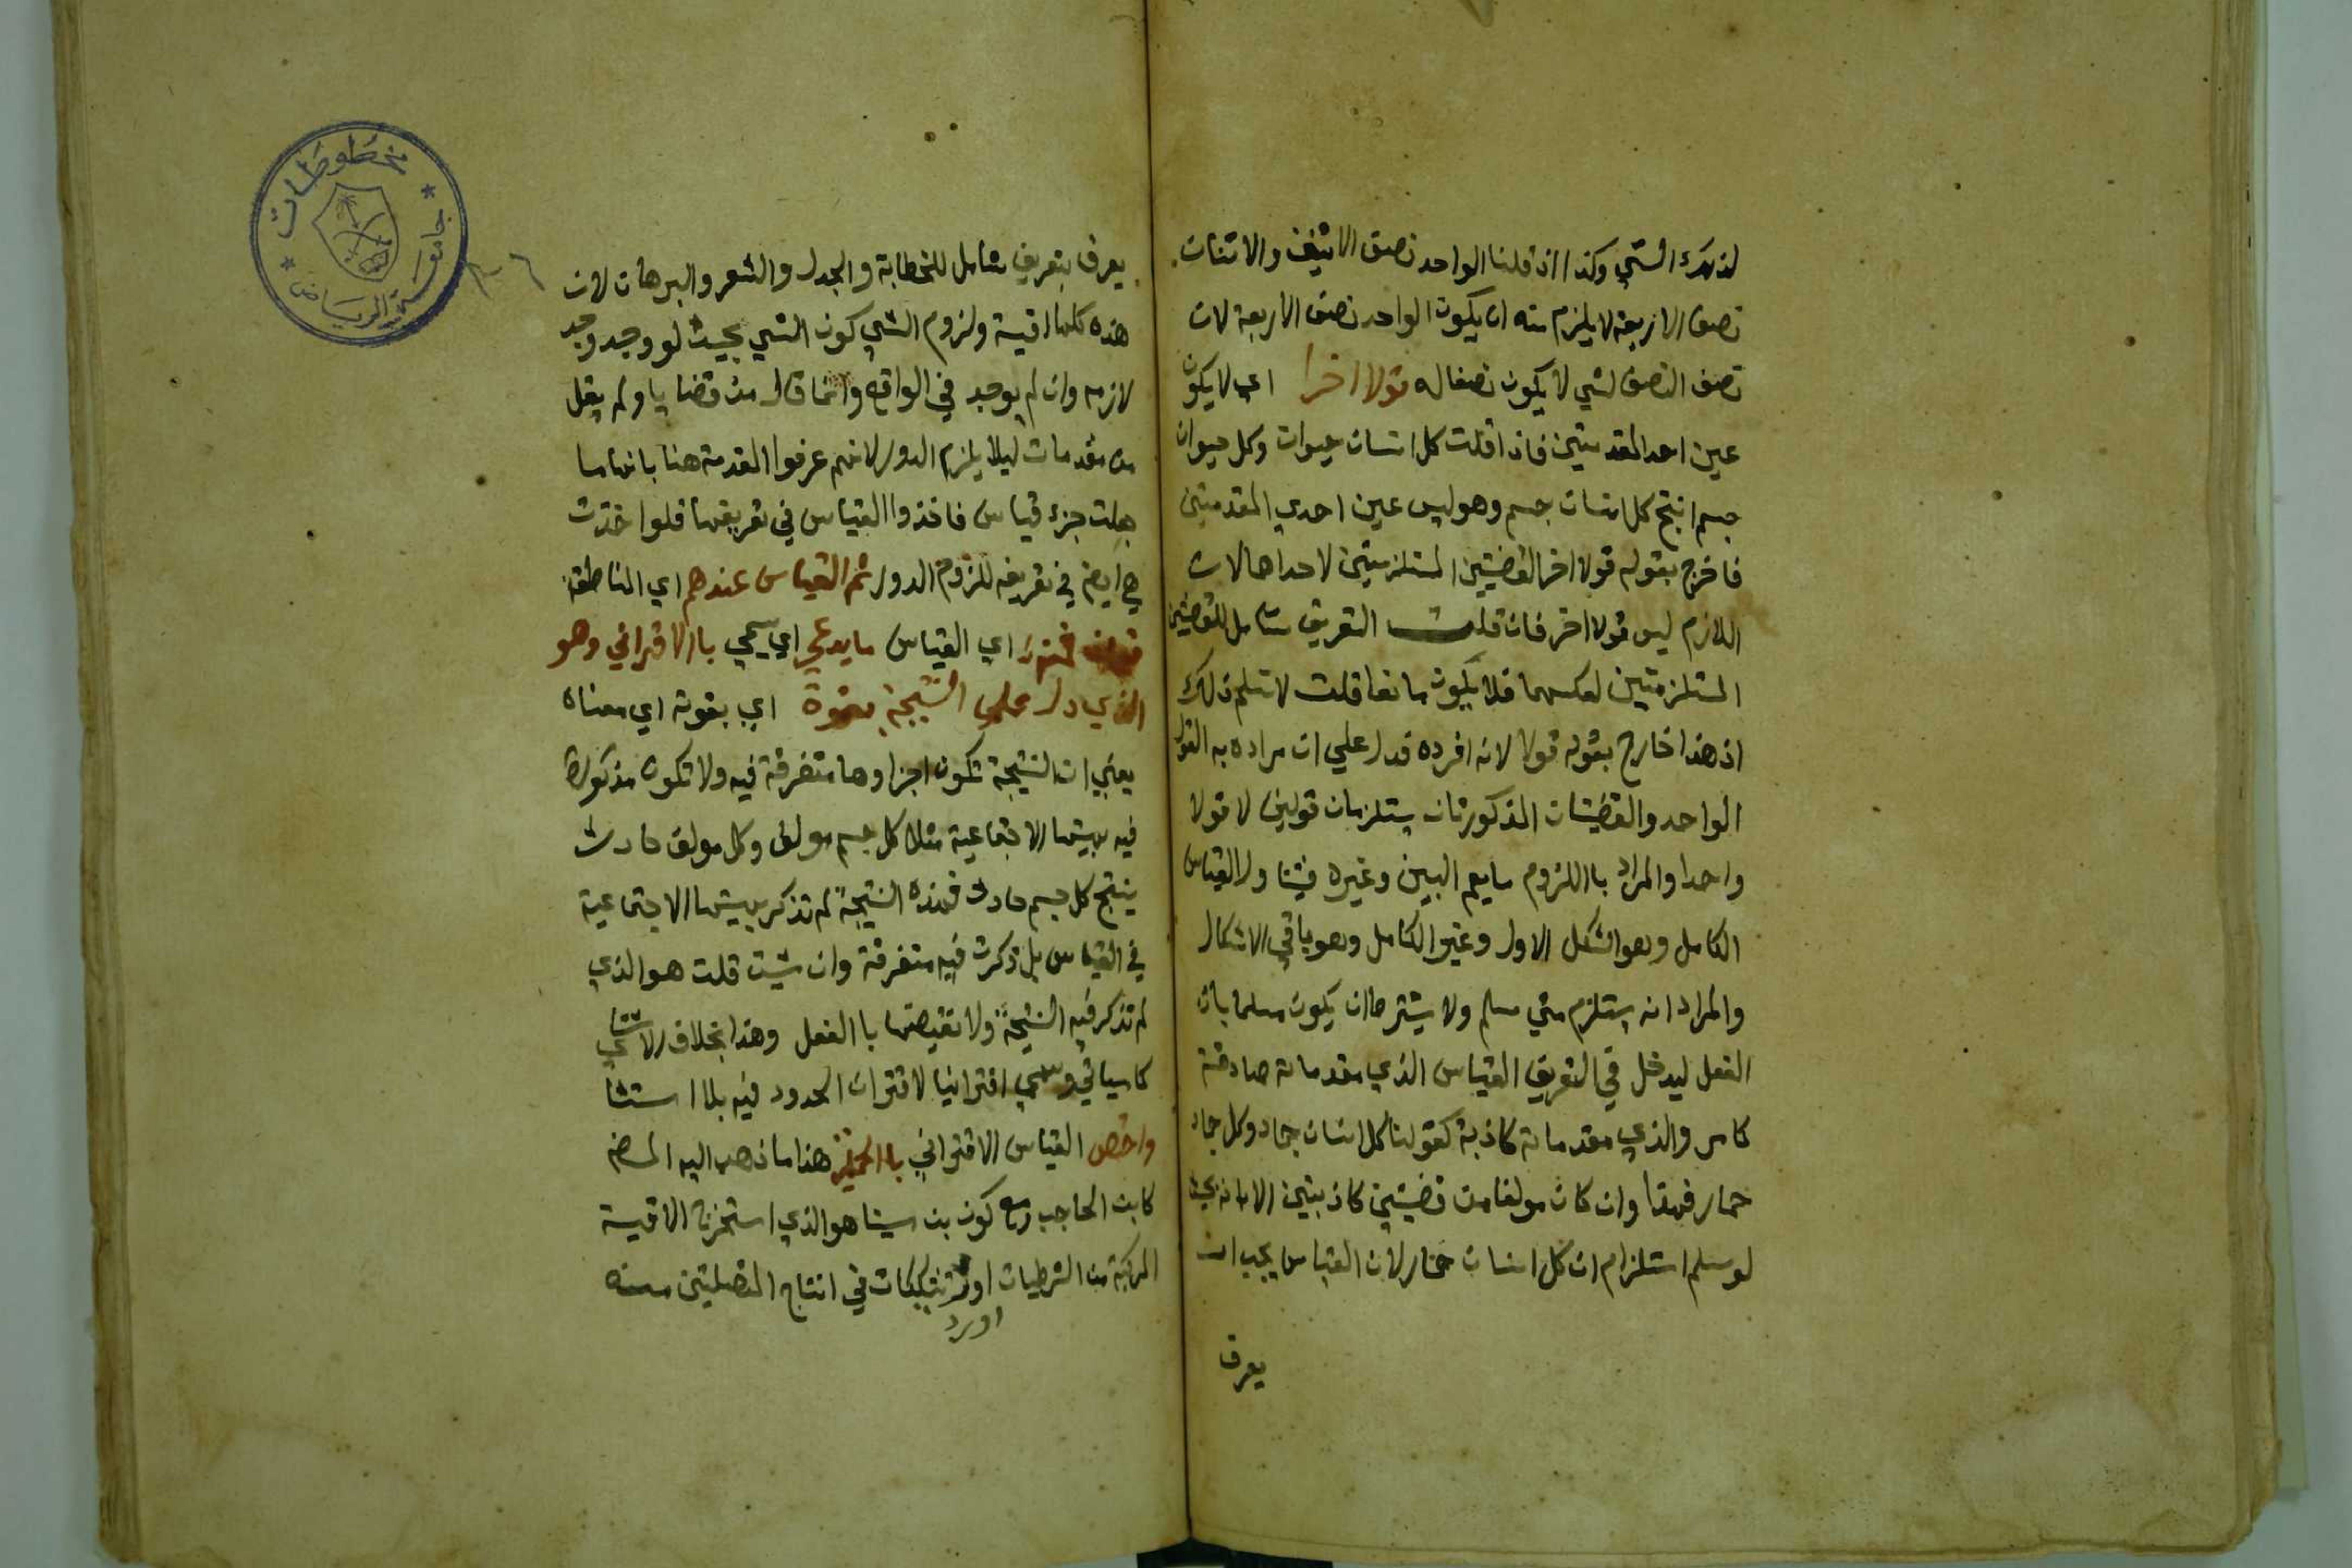 لذلك الشي وكذا اذ قلنا الواحد نصف الاثنين والاثنان
نصف الاربعة لا يلزم منه ان يكون الواحد نصف الاربعة لان
نصف النصف لشي لا يكون نصفا له قولا اخرا اي لا يكون
عين احد المقدمتين فاذا قلت كل انسان حيوان وكل حيوان
جسم انتج كل انسان جسم وهو ليس عين احدي المقدمتين
فاخرج بقوله قولا اخر القضيتين المستلزمتين لاحداهما لان
اللازم ليس قولا اخر فان قلت التعريف شامل للقضيتين
المستلزمتين لعكسهما فلا يكون مانعا قلت لا نسلم ذلك
اذ هذا خارج بقوله قولا لانه افرده فدل علي ان مراده به القول
الواحد والقضيتان المذكورتان يستلزمان قولين لا قولا
واحدا والمراد باللزوم ما يعم البين وغيره فيتناول القياس
الكامل وهو الشكل الاول وغير الكامل وهو باقي الاشكال
والمراد انه يستلزم متي سلم ولا يشترط ان يكون مسلما بان
الفعل ليدخل في التعريف القياس الذي مقدماته صادقة
كامر والذي مقدماته كاذبة كقولنا كل انسان جماد وكل جماد
حمار فهذا وان كان مولفا من قضيتين كاذبتين الا انه بحيث
لو سلم استلزام ان كل انسان حمار لان القياس يجب ان
يعرف
يعرف بتعريف شامل للخطابة والجدل والشعر والبرهان لان
هذه كلها اقيسة ولزوم الشي كون الشي بحيث لو وجد وجد
لازمه وان لم يوجد في الواقع وانما قال من قضايا ولم يقل
من مقدمات ليلا يلزم الدور لانهم عرفوا المقدمة هنا بانها ما
جعلت جزء قياس فاخذوا القياس في تعريفها فلو اخذت
هي ايضا في تعريفه للزوم الدور ثم القياس عندهم اي المناطقة
فمنه اي القياس ما يدعي اي يسمي بالاقتراني وهو
الذي دل علي النتيجة بقوة اي بقوته اي معناه
يعني ان النتيجة تكون اجزاوها متفرقة فيه ولا تكون مذكورة
فيه بهيئتها الاجتماعية مثلا كل جسم مولف وكل مولف حادث
ينتج كل جسم حادث فهذه النتيجة لم تذكر بهيئتها الاجتماعية
في القياس بل ذكرت فيه متفرقة وان شيت قلت هو الذي
لم تذكر فيه النتيجة ولا نقيضها باالفعل وهذا بخلاف الاستثناي
كما سياتي وسمي اقترانيا لاقتران الحدود فيه بلا استثنا
واختص القياس الاقتراني بالحملية هذا ما ذهب اليه المص
كابن الحاجب مع كون بن سينا هو الذي استخرج الاقيسة
المركبة من الشرطيات اورد تشكيكات في انتاج المتصلتين منه
اورد
٣٦
مخطوطات
جامعة الرياض